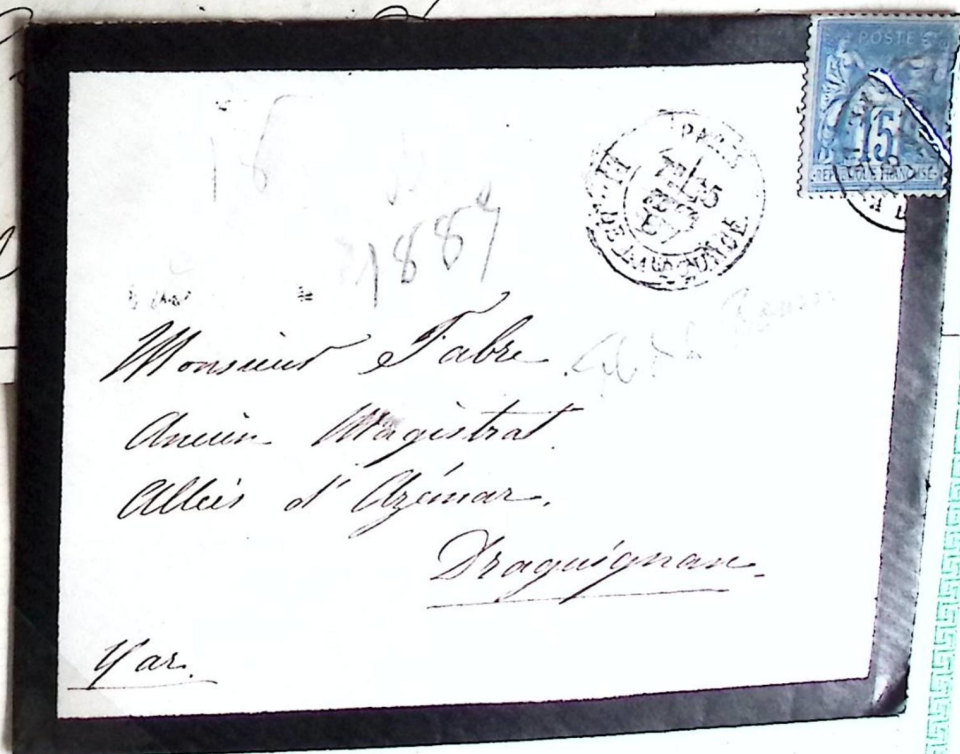 POSTES
15
REPUBLIQUE FRANÇAISE
PARIS
1887
Monsieur Fabre.
Ancien Magistrat.
Allées d'Azémar.
Draguignan.
Var.